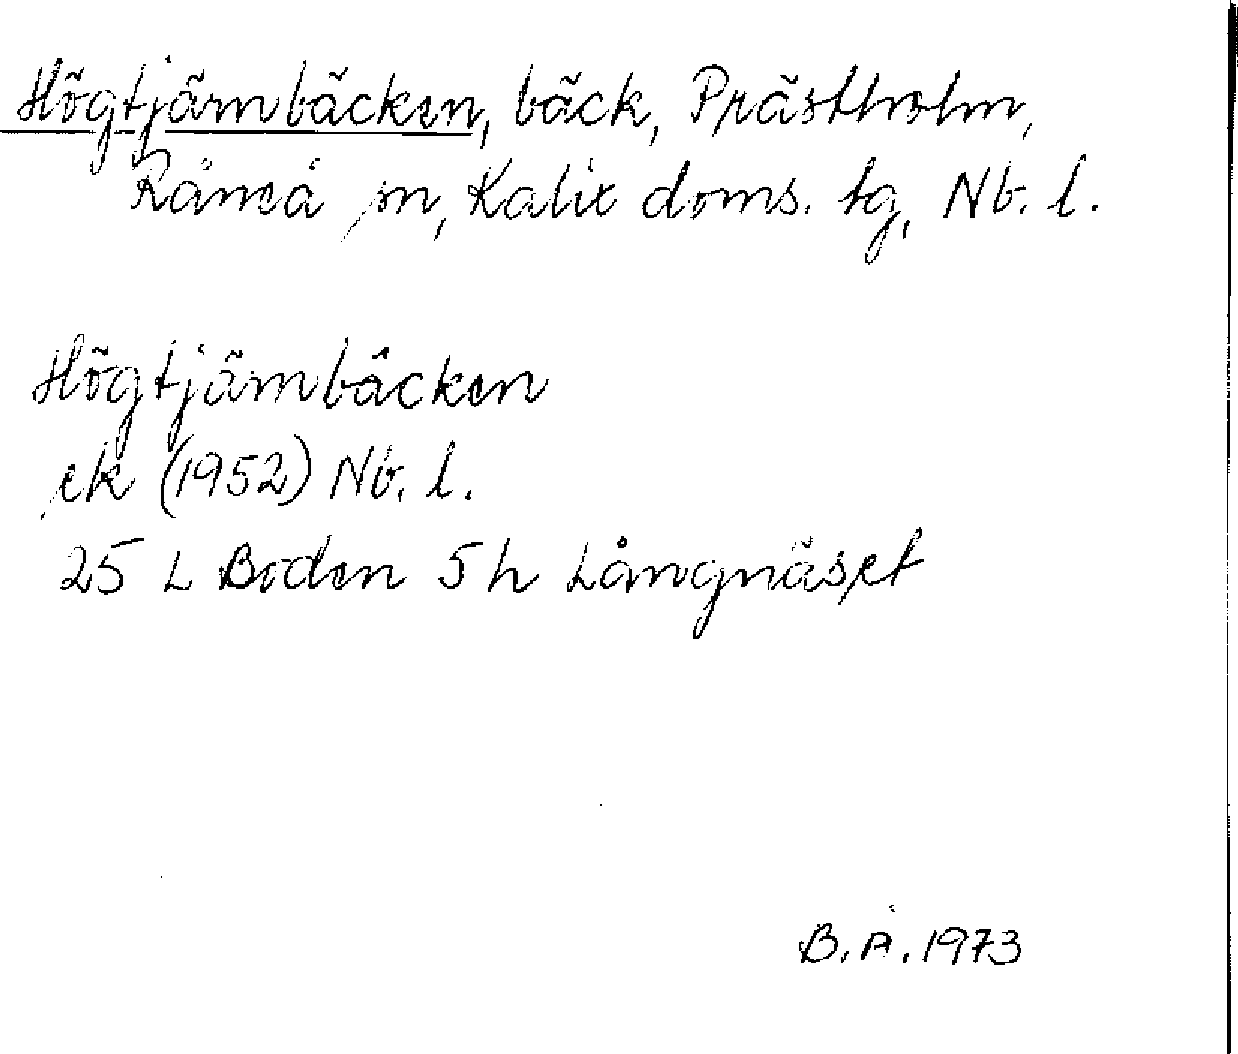 Högtjärnbäcken, bäck, Prästholm,
Råneå sn, Kalix doms. tg, Nb. l.
Högtjärnbäcken
ek (1952) Nb. l.
25 L Boden 5 h Långnäset
B.Å. 1973